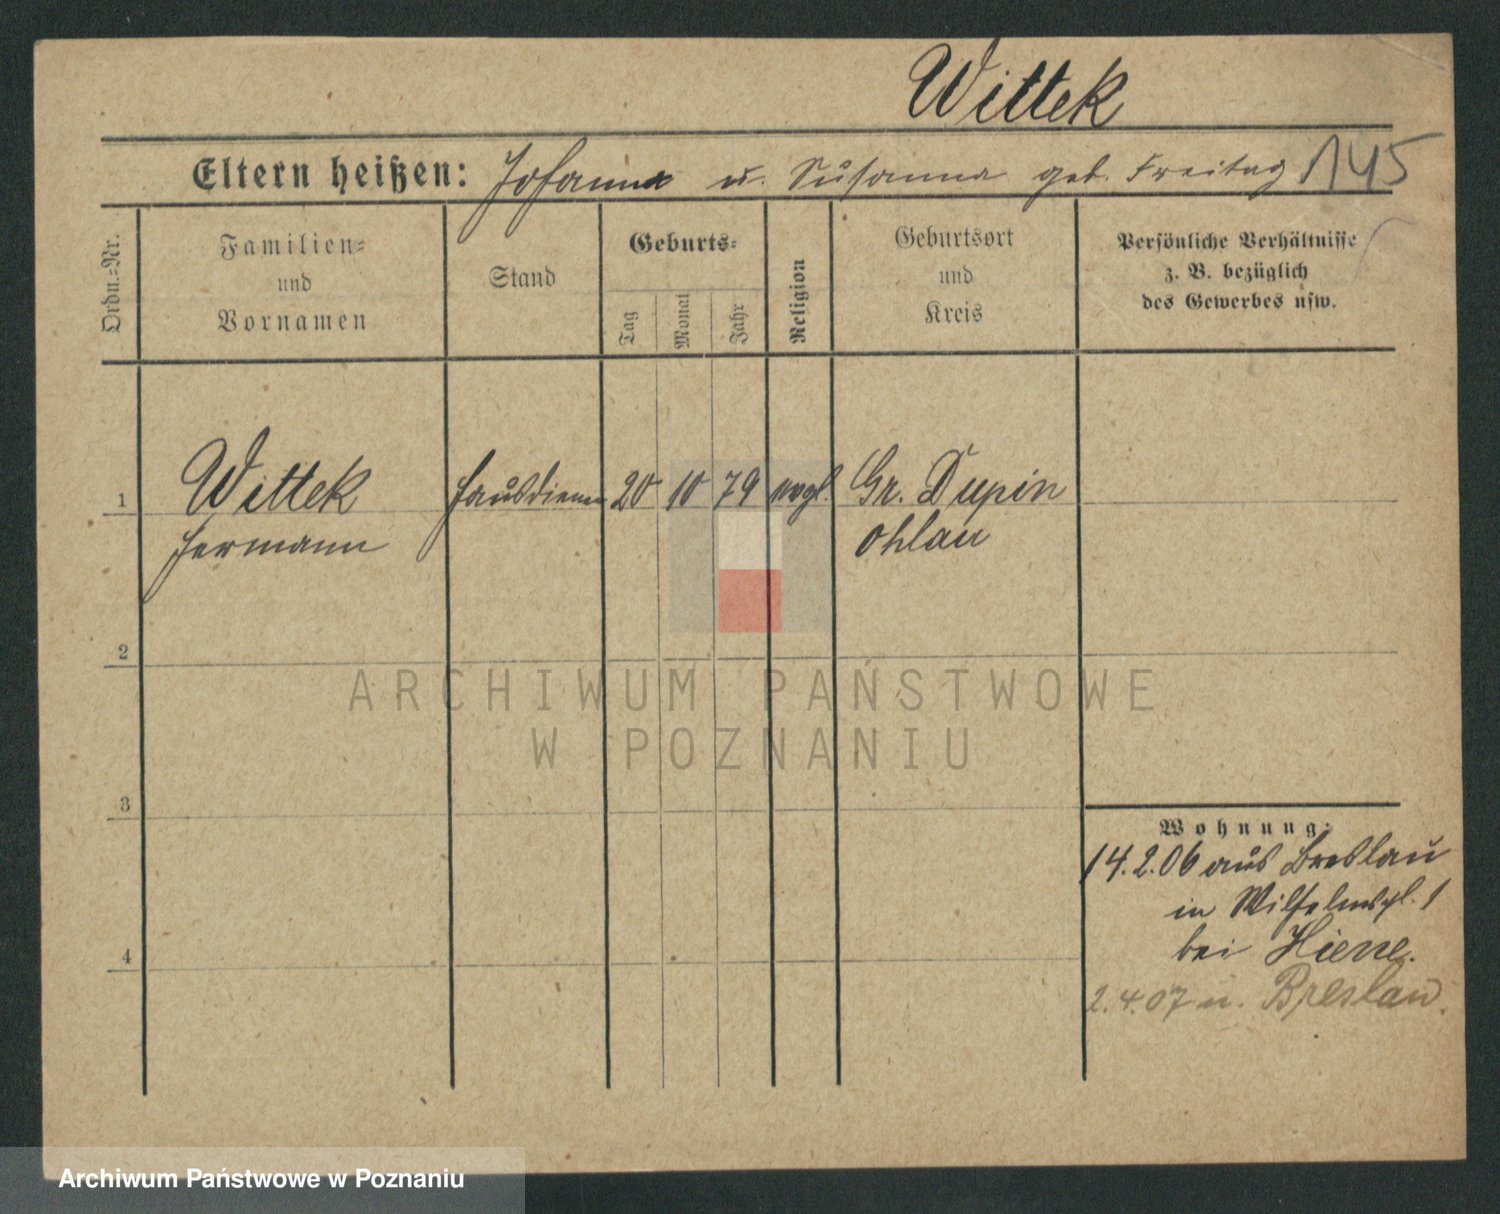 Wittek
Eltern heißen: Johanna u. Susanna geb. Freitag 145
Ordn.=Nr.
Familien=
und
Vornamen
Stand
Geburts=
Tag
Monat
Jahr
Religion
Geburtsort
und
Kreis
Persönliche Verhältnisse
z. B. bezüglich
des Gewerbes usw.
1 Wittek Hausdiener 20 10 79 evgl. Gr. Dupin
Hermann Ohlau
2
3
4
Wohnung:
14.2.06 aus Breslau
in Wilhelmspl. 1
bei
2.4.07 n. Breslau.
ARCHIWUM PAŃSTWOWE
W POZNANIU
Archiwum Państwowe w Poznaniu